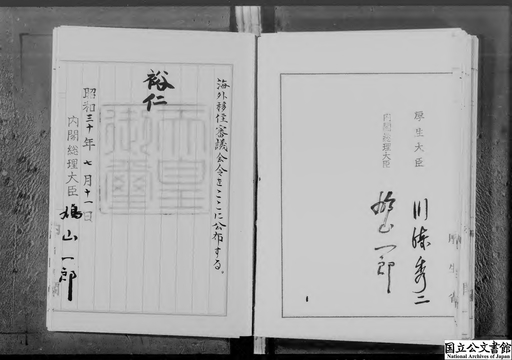 厚生大臣
川崎秀二
内閣総理大臣
鳩山一郎
海外移住審議会令をここに公布する。
裕仁
天皇御璽
昭和三十年七月十一日
内閣総理大臣
鳩山一郎
国立公文書館
National Archives of Japan